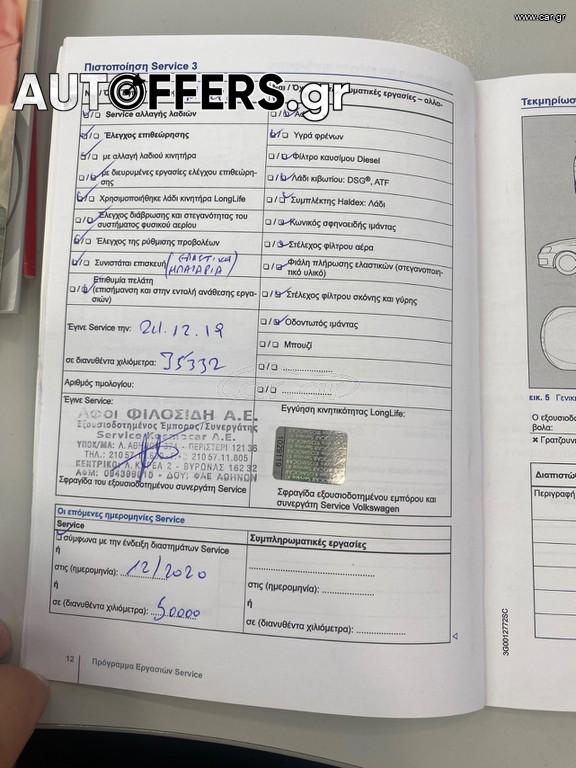 www.car.gr
Πιστοποίηση Service 3
AUTOFFERS.gr
ματικές εργασίες – αλλα-
☐/☐ Service αλλαγής λαδιών
☐/☐ Έλεγχος επιθεώρησης
☐/☐ με αλλαγή λαδιού κινητήρα
☐/☐ με διευρυμένες εργασίες ελέγχου επιθεώρη-
σης
☐/☐ Χρησιμοποιήθηκε λάδι κινητήρα LongLife
☐/☐ Έλεγχος διάβρωσης και στεγανότητας του
συστήματος φυσικού αερίου
☐/☐ Έλεγχος της ρύθμισης προβολέων
☐/☐ Συνιστάται επισκευή (ΕΛΑΣΤΙΚΑ
ΜΠΑΤΑΡΙΑ)
Επιθυμία πελάτη
☐/☐ (επισήμανση και στην εντολή ανάθεσης εργα-
σιών)
☐/☐ Υγρά φρένων
☐/☐ Φίλτρο καυσίμου Diesel
☐/☐ Λάδι κιβωτίου: DSG®, ATF
☐/☐ Συμπλέκτης Haldex: Λάδι
☐/☐ Κωνικός σφηνοειδής ιμάντας
☐/☐ Στέλεχος φίλτρου αέρα
☐/☐ Φιάλη πλήρωσης ελαστικών (στεγανοποιη-
τικό υλικό)
☐/☐ Στέλεχος φίλτρου σκόνης και γύρης
☐/☐ Οδοντωτός ιμάντας
☐/☐ Μπουζί
☐/☐ ....................
☐/☐ ....................
Έγινε Service την: 24.12.19
σε διανυθέντα χιλιόμετρα: 35332
Αριθμός τιμολογίου:
Έγινε Service:
ΑΦΟΙ ΦΙΛΟΣΙΔΗ Α.Ε.
Εξουσιοδοτημένος Έμπορος/Συνεργάτης
Service Kosmocar A.E.
ΠΕΡΙΣΤΕΡΙ 121 36
210 57.11.805
ΒΥΡΩΝΑΣ 162 32
ΔΟΥ: ΦΑΕ ΑΘΗΝΩΝ
Σφραγίδα του εξουσιοδοτημένου συνεργάτη Service
Εγγύηση κινητικότητας LongLife:
Σφραγίδα εξουσιοδοτημένου εμπόρου και
συνεργάτη Service Volkswagen
Οι επόμενες ημερομηνίες Service
Service
☐ σύμφωνα με την ένδειξη διαστημάτων Service
ή
στις (ημερομηνία): 12/2020
ή
σε (διανυθέντα χιλιόμετρα): 50000
Συμπληρωματικές εργασίες
....................
στις (ημερομηνία): ....................
ή
σε (διανυθέντα χιλιόμετρα): ....................
12 Πρόγραμμα Εργασιών Service
3G0012772SC
Τεκμηρίωσ
εικ. 5 Γενικ
Ο εξουσιοδο
βολα:
× Γρατζουν
Διαπιστω
Περιγραφή